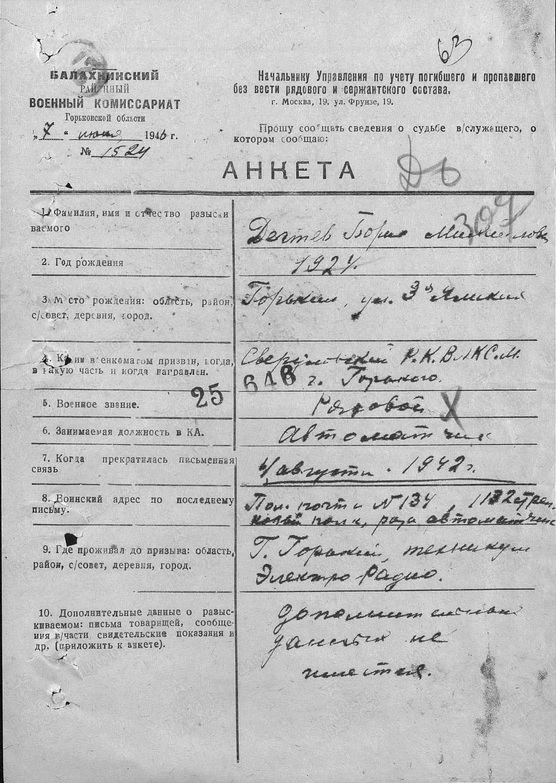 63
БАЛАХНИНСКИЙ
РАЙОННЫЙ
ВОЕННЫЙ КОМИССАРИАТ
Горьковской области
„7" июня 1946 г.
№ 1524
Начальнику Управления по учету погибшего и пропавшего
без вести рядового и сержантского состава,
г. Москва, 19, ул. Фрунзе, 19.
Прошу сообщить сведения о судьбе в/служащего, о
котором сообщаю:
АНКЕТА
307
1. Фамилия, имя и отчество разыски
ваемого
Дегтев Борис Михайлович
2. Год рождения
1924.
3. Место рождения: область, район,
с/совет, деревня, город.
Горький, ул. 3я Ямская
4. Каким военкоматом призван, когда,
в какую часть и когда направлен.
Свердловский Р.К.ВЛКС.М.
г. Горького.
25 646
5. Военное звание.
Рядовой
6. Занимаемая должность в КА.
Автоматчик
7. Когда прекратилась письменная
связь
августа 1942 г.
8. Воинский адрес по последнему
письму.
Пол. почта N 134, 1132 стрел
ковый полк, рота автоматчик
9. Где проживал до призыва: область,
район, с/совет, деревня, город.
Г. Горький, техникум
Электро Радио.
10. Дополнительные данные о разыс-
киваемом: письма товарищей, сообще-
ния в/части свидетельские показания и
др. (приложить к анкете).
дополнительных
данных не
имеется.